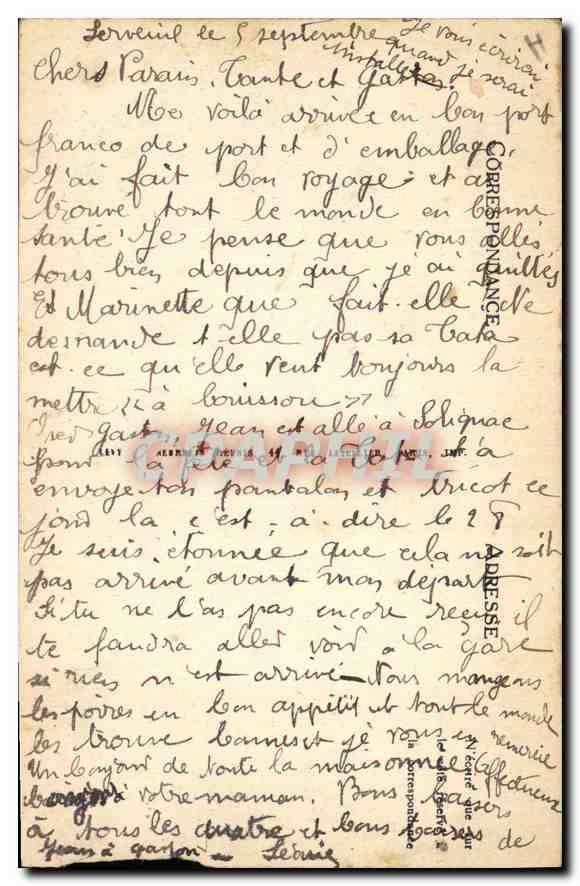 le 5 septembre
Je vous écrirai
quand je serai
installée
Chers Parain, Tante et
Me voilà arrivée en bon port
franco de port et d'emballage.
J'ai fait bon voyage et ai
trouvé tout le monde en bonne
santé Je pense que vous allés
tous bien depuis que je ai quittés
Et Marinette que fait-elle Ne
demande t-elle pas sa Tata
est-ce qu'elle veut toujours la
mettre << à bouisson >>
Jean est allé à Solignac
pour la fête et a
envoyé ton pantalon et tricot ce
jour la c'est-à-dire le 28
Je suis étonnée que cela ne soit
pas arrivé avant mon départ
Si tu ne l'as pas encore reçu il
te faudra aller voir à la gare
si rien n'est arrivé Nous mangeons
les poires en bon appétit et tout le monde
les trouve bonnes et je vous en remercie
Un bonjour de toute la maisonnée affectueux
à votre maman. Bons baisers
à tous les quatre et bons baisers de
CORRESPONDANCE
ADRESSE
N'écrire que sur
le côté réservé à
la correspondance
CPAPHIL